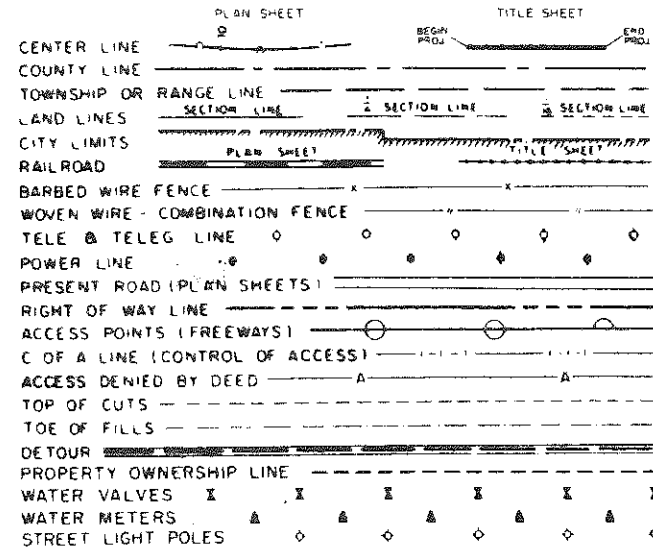 PLAN SHEET TITLE SHEET
BEGIN PROJ END PROJ
CENTER LINE
COUNTY LINE
TOWNSHIP OR RANGE LINE
LAND LINES SECTION LINE SECTION LINE SECTION LINE
CITY LIMITS
PLAN SHEET TITLE SHEET
RAILROAD
BARBED WIRE FENCE x x
WOVEN WIRE - COMBINATION FENCE
TELE & TELEG LINE
POWER LINE
PRESENT ROAD (PLAN SHEETS)
RIGHT OF WAY LINE
ACCESS POINTS (FREEWAYS)
C OF A LINE (CONTROL OF ACCESS)
ACCESS DENIED BY DEED
TOP OF CUTS
TOE OF FILLS
DETOUR
PROPERTY OWNERSHIP LINE
WATER VALVES
WATER METERS
STREET LIGHT POLES